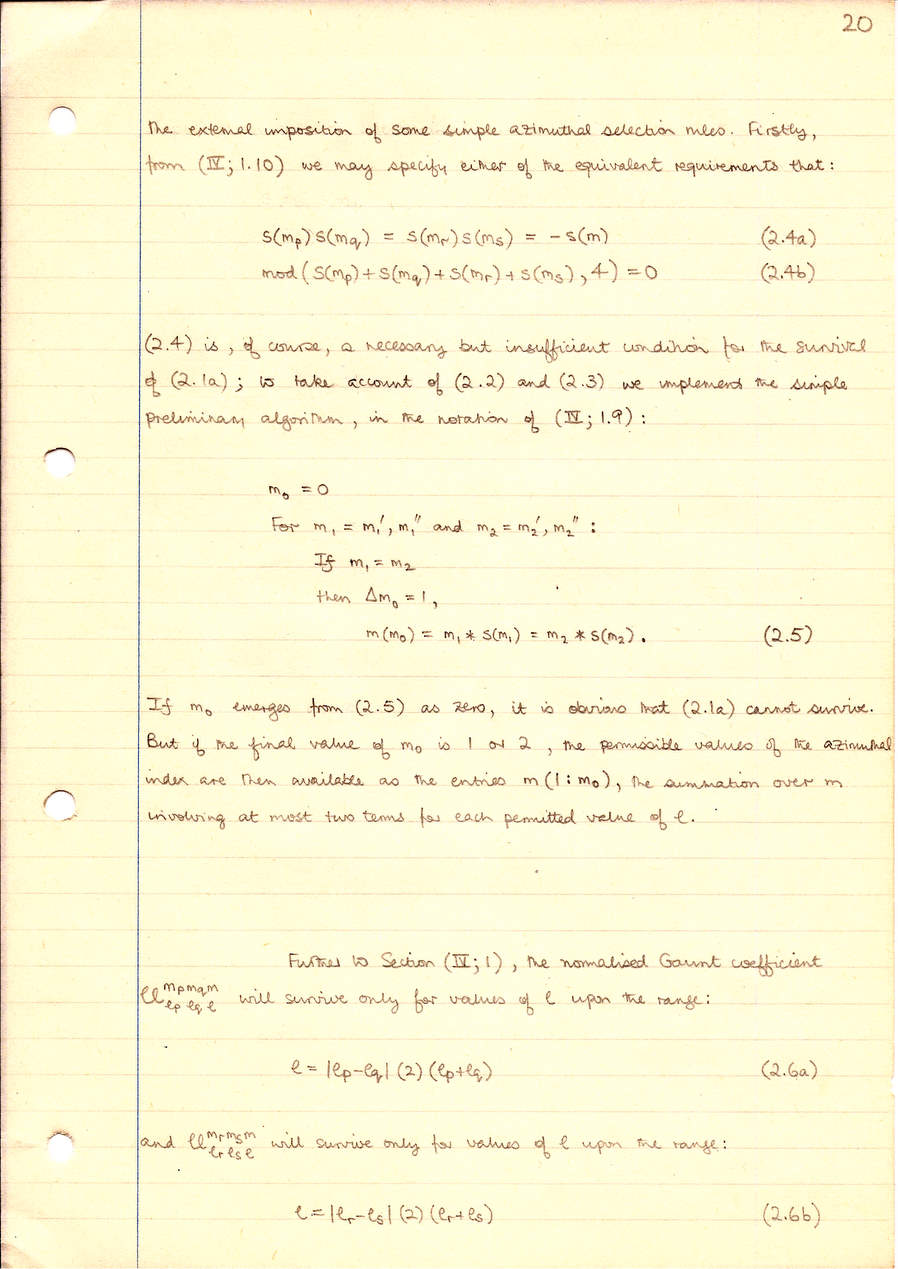 20
the external imposition of some simple azimuthal selection rules. Firstly,
from (IV; 1.10) we may specify either of the equivalent requirements that:
s(m_p)s(m_q) = s(m_r)s(m_s) = -s(m) (2.4a)
mod(s(m_p)+s(m_q)+s(m_r)+s(m_s),4) = 0 (2.4b)
(2.4) is, of course, a necessary but insufficient condition for the survival
of (2.1a); to take account of (2.2) and (2.3) we implement the simple
preliminary algorithm, in the notation of (IV; 1.9):
m_0 = 0
For m_1 = m_1', m_1'' and m_2 = m_2', m_2'' :
If m_1 = m_2
then Δm_0 = 1,
m(m_0) = m_1 * s(m_1) = m_2 * s(m_2). (2.5)
If m_0 emerges from (2.5) as zero, it is obvious that (2.1a) cannot survive.
But if the final value of m_0 is 1 or 2, the permissible values of the azimuthal
index are then available as the entries m(1:m_0), the summation over m
involving at most two terms for each permitted value of ℓ.
Further to Section (IV; 1), the normalised Gaunt coefficient
U^{m_p m_q m}_{ℓ_p ℓ_q ℓ} will survive only for values of ℓ upon the range:
ℓ = |ℓ_p-ℓ_q| (2) (ℓ_p+ℓ_q) (2.6a)
and U^{m_r m_s m}_{ℓ_r ℓ_s ℓ} will survive only for values of ℓ upon the range:
ℓ = |ℓ_r-ℓ_s| (2) (ℓ_r+ℓ_s) (2.6b)